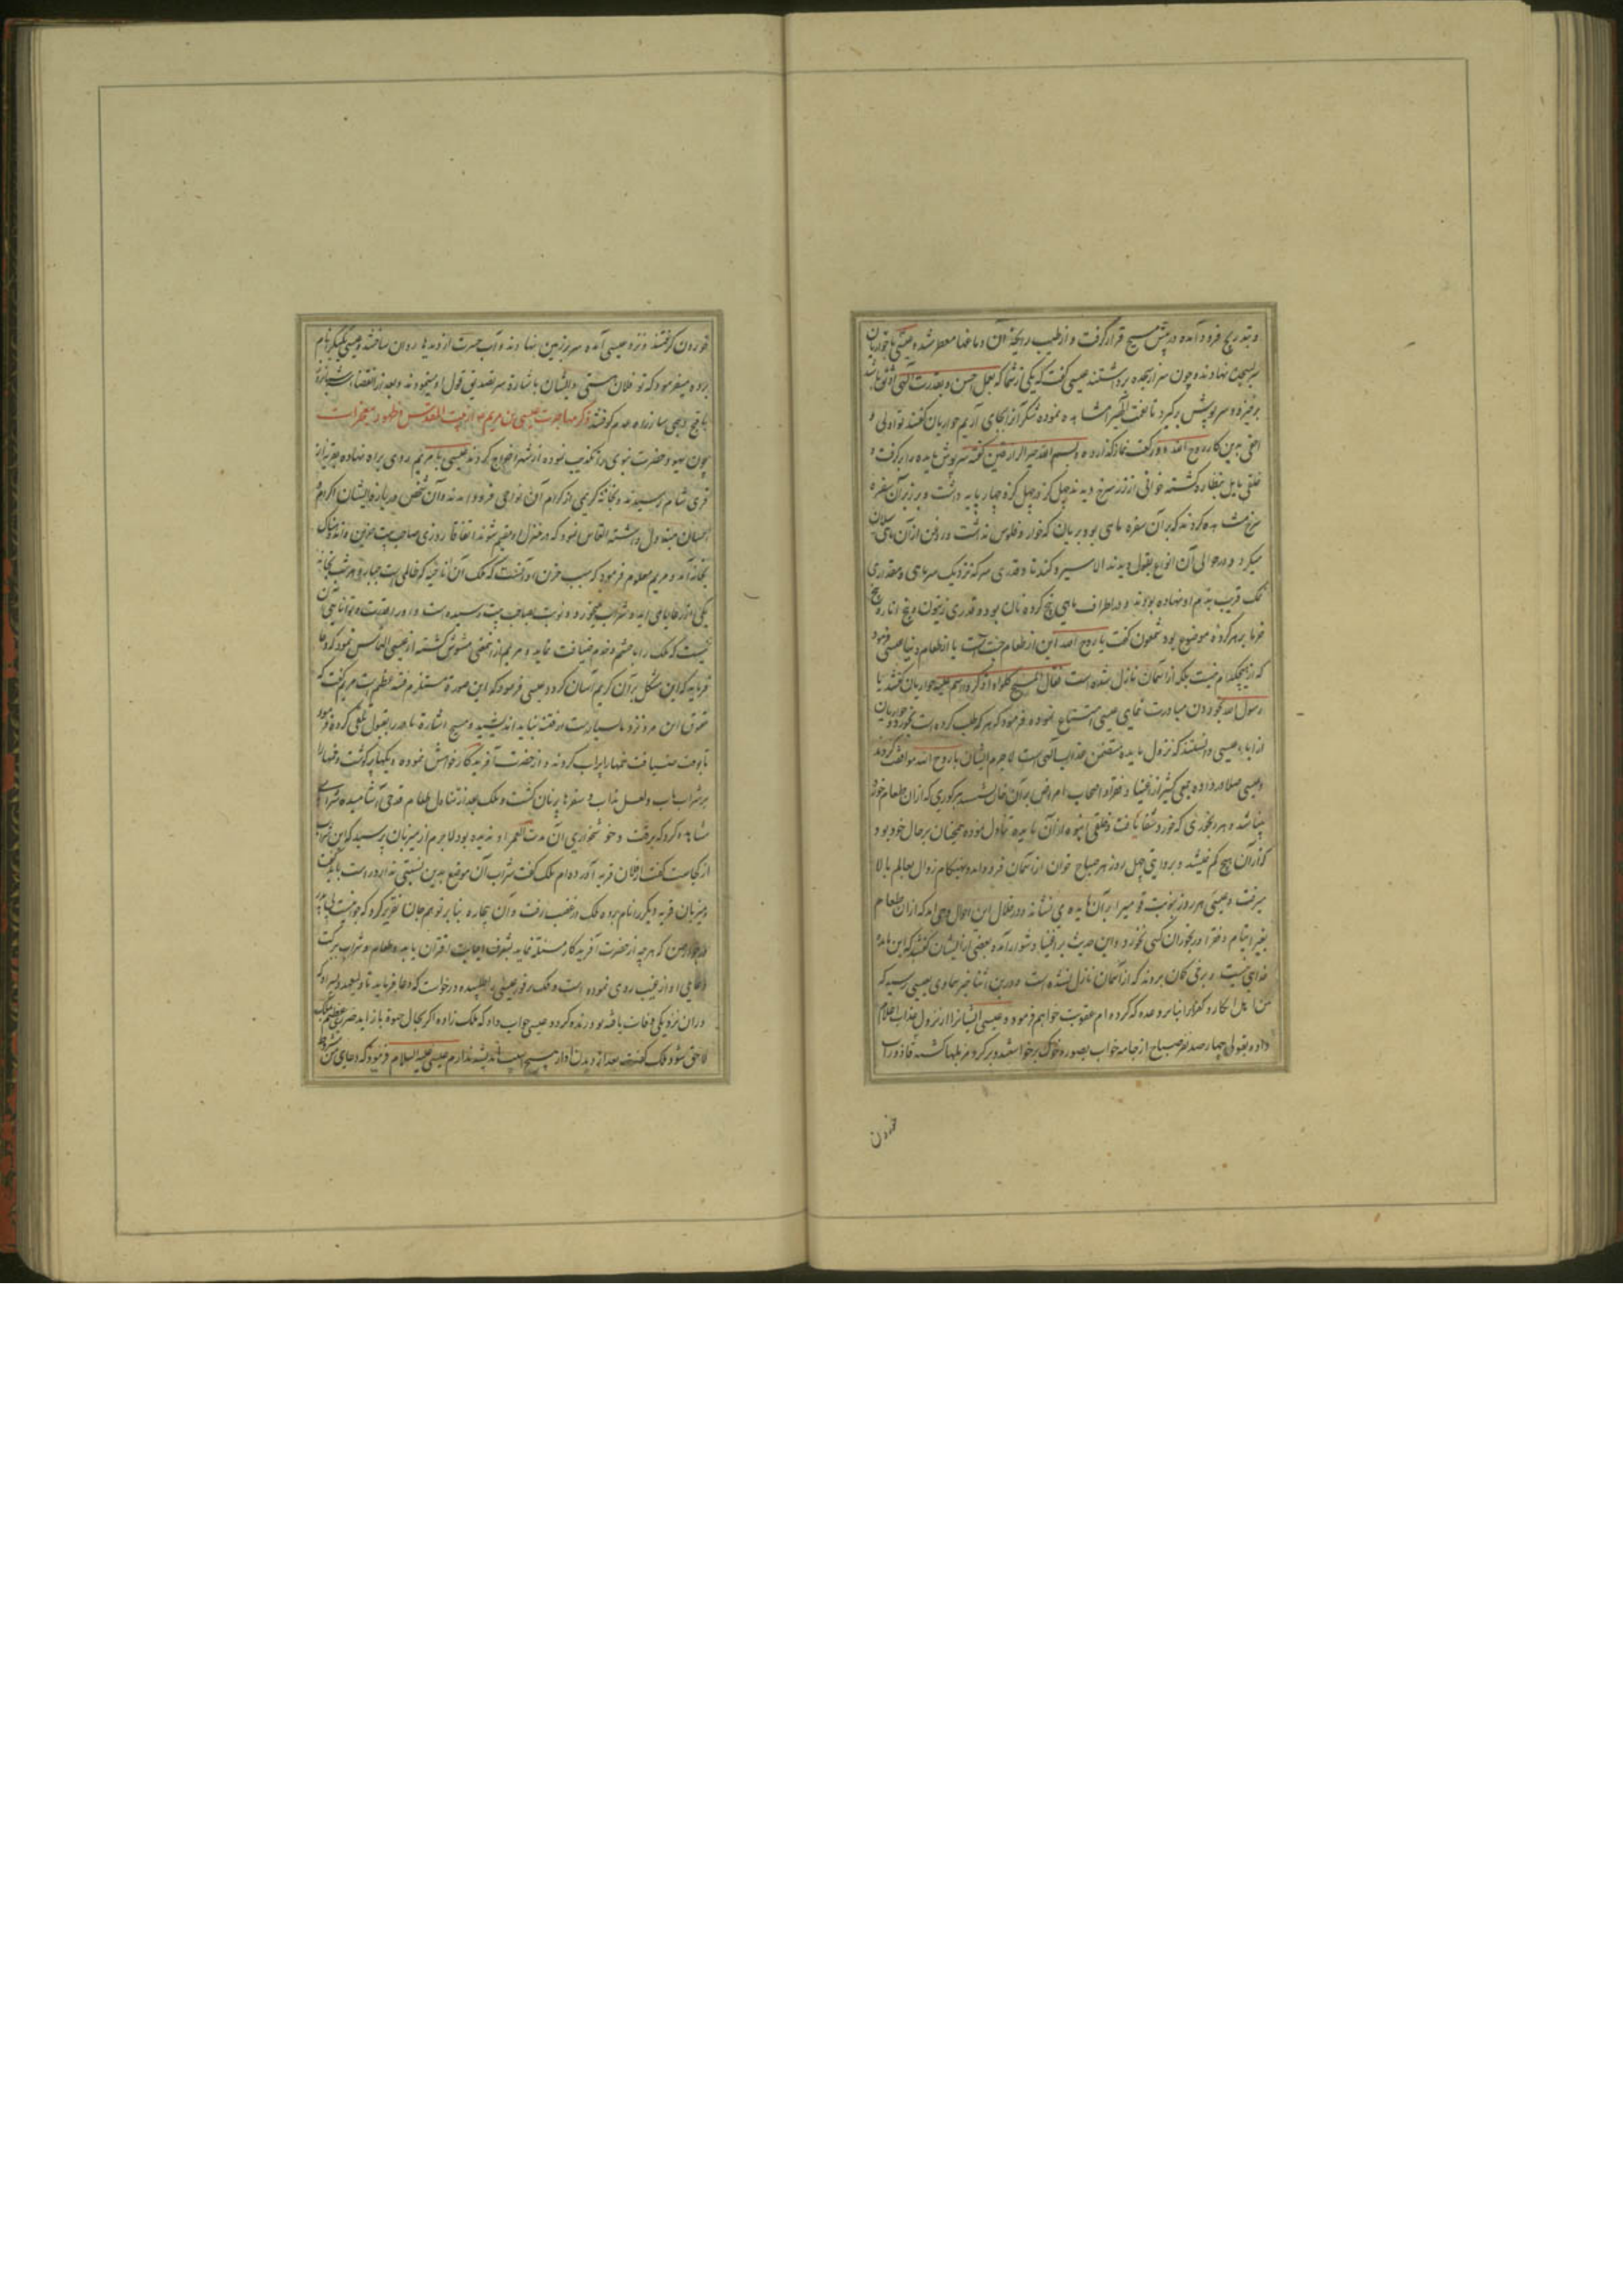 و بتدریج فرود آمده در پیش مسیح قرار گرفت و از طیب رایحهٔ آن دماغها معطر شده و عیسی با حواریان
سر بسجده نهادند و چون سر از سجده برداشتند عیسی گفت که یکی از شما که بعمل احسن و بقدرت الهی اوثق باشد
برخیزد و سرپوش برگیرد تا نعمت مشاهده نموده شکر آنرا بجای آریم حواریان گفتند تو اولی و
احق بدین کار روح الله دو رکعت نماز گذارده و بسم الله خیر الرازقین گفته سرپوش مایده برگرفت و
خلقی بنظاره گشته خوانی از زر سرخ دیدند چهل گز در چهل گز و چهار پایه داشت و بر زبر آن سفره
سرخ مشاهده کردند که بر آن سفره ماهی بود بریان که خار و فلوس نداشت و روغن از آن ماهی سیلان
میکرد و در حوالی آن انواع بقول دیدند الا سیر و گندنا و قدری سرکه نزدیک سر ماهی و مقداری
نمک قریب بدم او نهاده بودند و در اطراف ماهی پنج گرده نان بود و قدری زیتون و پنج انار و پنج
خرما بر هر گرده موضوع بود شمعون گفت یا روح الله این از طعام جنت است یا از طعام دنیا عیسی فرمود
که از هیچکدام نیست بلکه از آسمان نازل شده است فقال المسیح کلوا و اذکروا اسم علیه حواریان گفتند یا
رسول الله بخوردن مبادرت نمای عیسی امتناع نموده فرمود که هر که طلب کرده است بخورد و حواریان
از اباء عیسی دانستند که نزول مایده متضمن عذاب الهی است لاجرم ایشان با روح الله موافقت کردند
و عیسی صلا در داده جمعی کثیر از اغنیا و فقرا و اصحاب امراض بر آن خوان هر کوری که از ان طعام خورد
بینا شد و هر رنجوری که خورد شفا یافت و خلقی انبوه از آن مایده تناول نموده همچنان بر حال خود بود
که از آن هیچ کم نمیشد و بروایتی چهل روز هر صباح خوان از آسمان فرود آمد و بهنگام زوال بعالم بالا
میرفت و عیسی هر روز بنوبت قومی را بر آن مایده می نشاند و در خلال این احوال وحی آمد که از ان طعام
بغیر ایتام و فقرا و رنجوران کسی نخورد و این حدیث بر اغنیا دشوار آمده بعضی از ایشان گفتند که این مایده
خدای نیست و برخی گمان بردند که از آسمان نازل نشده است و در بن اثنا خبر سماوی بعیسی رسید که
من اهل انکار و کفر را بنابر وعده که کرده ام عقوبت خواهم فرمود و عیسی ایشانرا از نزول عذاب اعلام
داده بقولی چهار صد نفر صباح از جامه خواب بصورت خوک برخواستند و بر گرد مزبلها گشته قاذورات
خوردن
خوردن گرفتند و نزد عیسی آمده سر بر زمین نهادند و آب حسرت از دیدها روان ساختند و عیسی یکیک را نام
برده میفرمود که تو فلان هستی و ایشان باشارة سر تصدیق قول او مینمودند و بعد از انقضاء شبانروز
باقبح وجهی راه عدم گرفتند ذکر مهاجرت عیسی بن مریم از بیت المقدس و ظهور معجزات
چون یهود حضرت نبوی را تکذیب نموده از شهر اخراج کردند عیسی با مریم روی براه نهاده بقریه از
قری شام رسیدند و بخانهٔ کریمی از کرام آن نواحی فرود آمدند و آن شخص درباره ایشان اکرام و
احسان مبذول داشته التماس نمود که در منزل او مقیم شوند اتفاقا روزی صاحب بیت حزین و اندوهناک
بخانه آمد و مریم معلوم فرمود که سبب حزن او آنست که ملک آن ناحیه که ظالمی است جبار هر شب بخانه
یکی از رعایا می آید و شراب میخورد و نوبت بصاحب بیت رسیده است و او را قدرت و توانایی آن
نیست که ملک را با حشم و خدم ضیافت نماید و مریم از این معنی مشوش گشته از عیسی التماس نمود که دعا
فرماید که این مشکل بر آن کریم آسان گردد عیسی فرمود که این صورة مستلزم فتنه عظیم است مریم گفت که
حقوق این مرد نزد ما بسیار است از فتنه نباید اندیشید و مسیح اشارة مادر را بقبول تلقی کرده فرمود
تا بوقت ضیافت خمها را پر آب کردند و از حضرت آفریدگار خواهش نموده دیگها پر گوشت و خمها
پر شراب ناب و لعل مذاب و سفرها پر نان گشت و ملک بعد از تناول طعام قدحی آشامیده شرابی
مشاهده کرد که برقت و خوشخواری آن مدت العمر او ندیده بود لاجرم از میزبان پرسید که این شراب
از کجاست گفت از فلان قریه آورده ام ملک گفت شراب آن موضع بدین نسبتی ندارد
میزبان قریه دیگر را نام برده ملک در غضب رفت و آن بیچاره بنابر توهم جان تقریر کرد که
در جوار من که هر چه از حضرت آفریدگار مسئلت نماید بشرف اجابت اقتران یابد و طعام و شراب ببرکت
دعای او از غیب روی نموده است و ملک بر فور عیسی را طلبیده درخواست که دعا فرماید تا ولیعهد و پسر او که
دران نزدیکی وفات یافته بود زنده گردد عیسی جواب داد که ملک زاده اگر بحال حیوة باز آید ضرری عظیم بملک
لاحق شود ملک گفت بعد از دیدن دیدار پسر هیچ اندیشه ندارم عیسی علیه السلام فرمود که دعای من مشروط